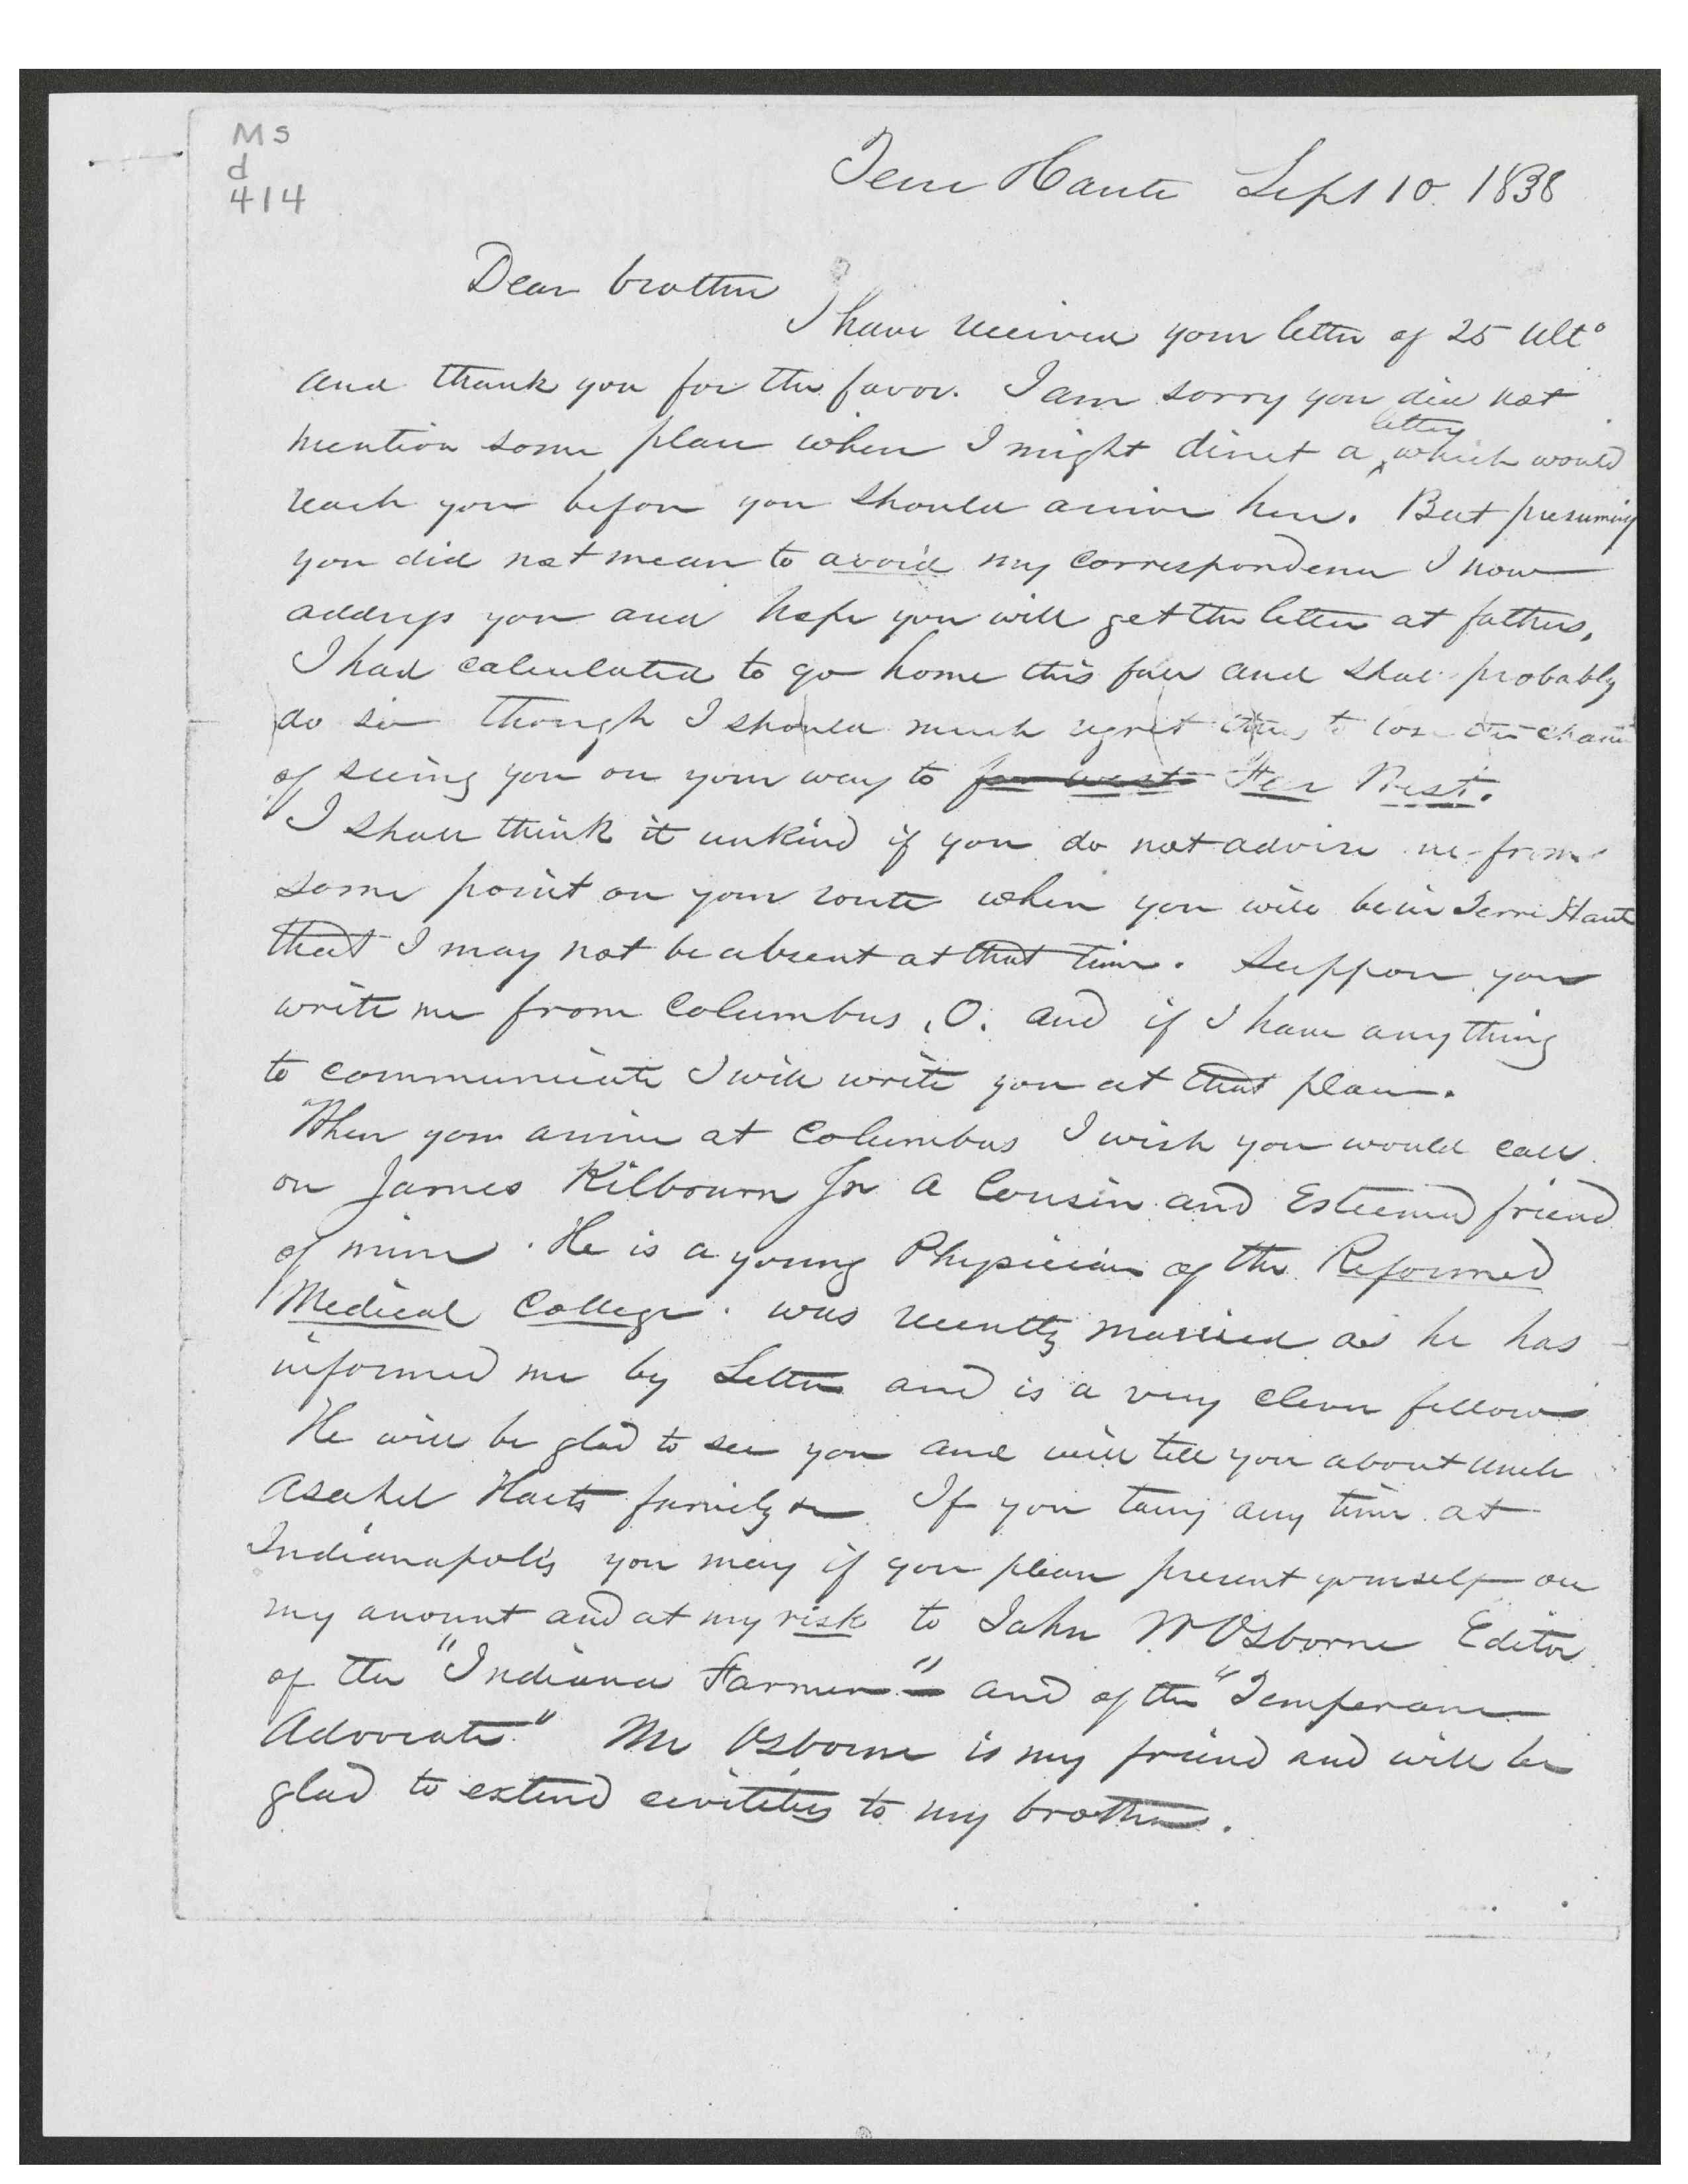 Ms
d
414
Terre Haute Sept 10. 1838
Dear brother
I have received your letter of 25 Ulto
and thank you for the favor. I am sorry you did not
mention some place where I might direct a letter which would
reach you before you should arrive here. But presuming
you did not mean to avoid my correspondence I now
address you and hope you will get the letter at fathers,
I had calculated to go home this fall and shall probably
do so though I should much regret to lose the chance
of seeing you on your way to far west Far West.
I shall think it unkind if you do not advise me from
some point on your route when you will be in Terre Haute
that I may not be absent at that time. Suppose you
write me from Columbus, O. and if I have any thing
to communicate I will write you at that place.
When you arrive at Columbus I wish you would call
on James Kilbourn Jr a Cousin and Esteemed friend
of mine. He is a young Physician of the Reformed
Medical College. was recently married as he has
informed me by Letter and is a very clever fellow
He will be glad to see you and will tell you about Uncle
Asahel Harts family &c If you tarry any time at
Indianapolis you may if you please present yourself on
my account and at my risk to John W Osborne Editor
of the "Indiana Farmer" and of the "Temperance
Advocate" Mr Osborne is my friend and will be
glad to extend civilities to my brother.